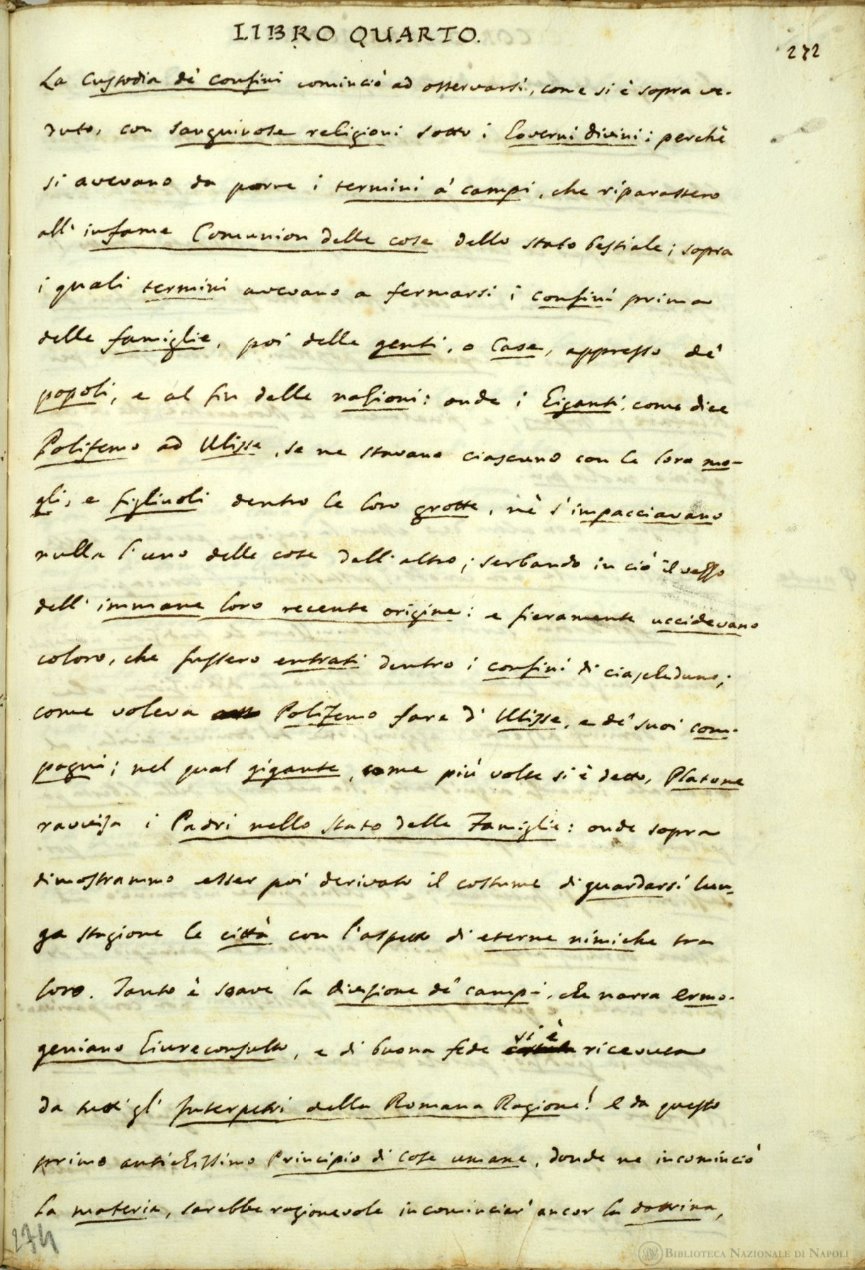 LIBRO QUARTO.
272
La Custodia de' confini cominciò ad osservarsi, come si è sopra ve-
duto, con sanguinose religioni sotto i Governi divini: perchè
si avevano da porre i termini a' campi, che riparassero
all' infame Comunion delle cose dello stato bestiale; sopra
i quali termini avevano a fermarsi i confini prima
delle famiglie, poi delle genti, o Case, appresso de'
popoli, e al fin delle nazioni: onde i Giganti, come dice
Polifemo ad Ulisse, se ne stavano ciascuno con le loro mo-
gli, e figliuoli dentro le loro grotte, nè s'impacciavano
nulla l'uno delle cose dell'altro; serbando in ciò il vezzo
dell' immane loro recente origine: e fieramente uccidevano
coloro, che fussero entrati dentro i confini di ciascheduno;
come voleva Polifemo fare d' Ulisse, e de' suoi com-
pagni; nel qual gigante, come più volte si è detto, Platone
ravvisa i Padri nello stato delle Famiglie: onde sopra
dimostrammo esser poi derivato il costume di guardarsi lun-
ga stagione le città con l'aspetto di eterne nimiche tra
loro. Tanto è soave la divisione de' campi, che narra Ermo-
geniano Giureconsulto, e di buona fede si è ricevuta
da tutti gl' Interpetri della Romana Ragione! E da questo
primo antichissimo Principio di cose umane, donde ne incominciò
la materia, sarebbe ragionevole incominciar' ancor la dottrina,
274
BIBLIOTECA NAZIONALE DI NAPOLI